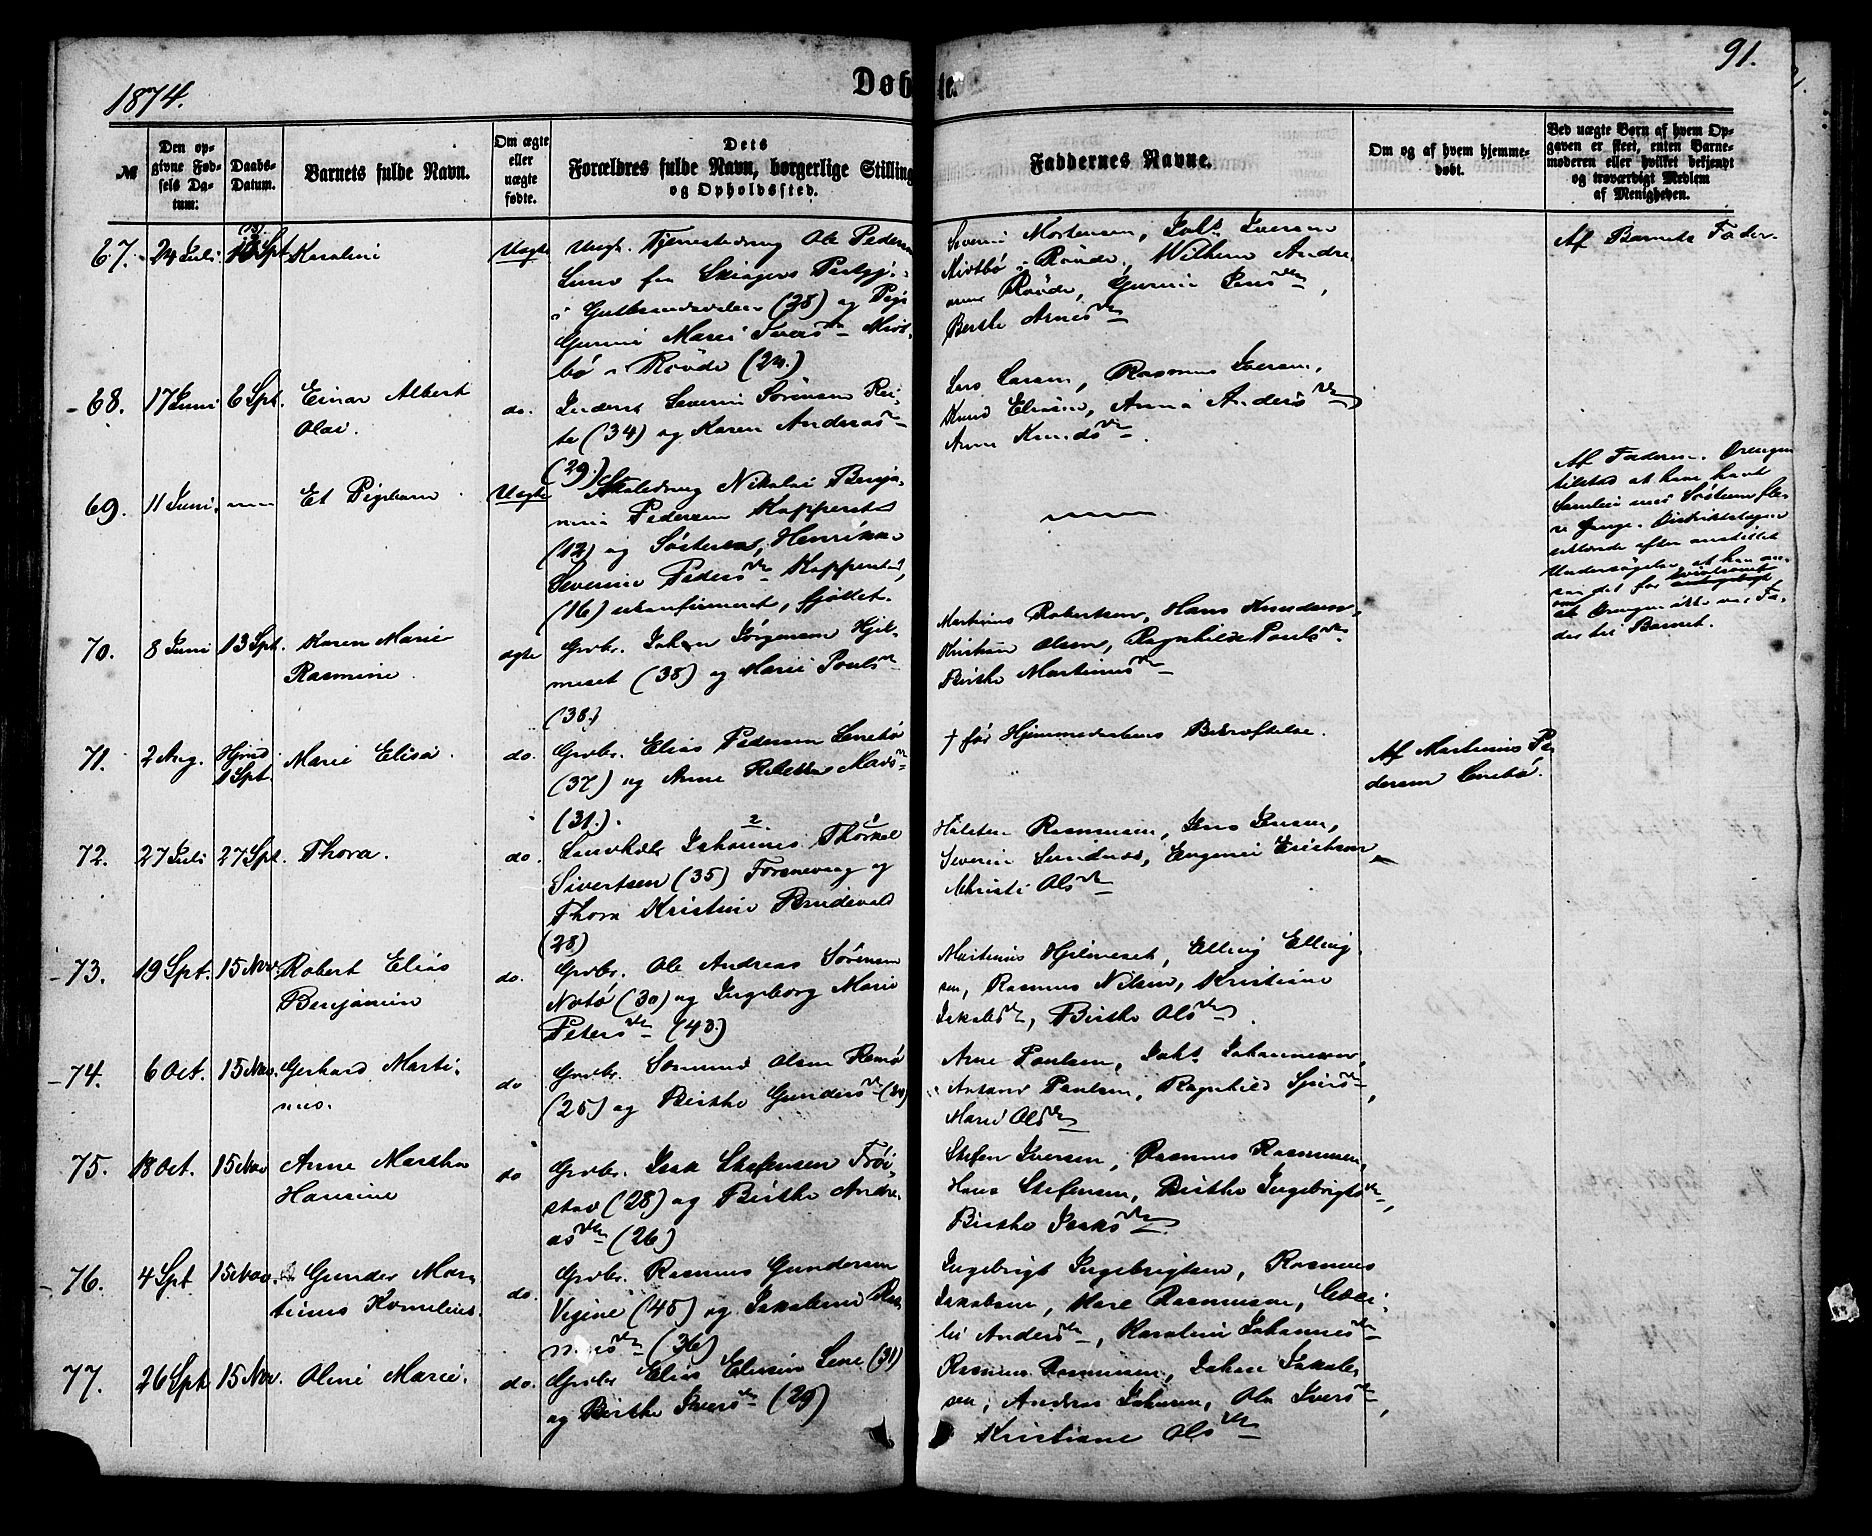 1874.
Døbte.
91.
№
Den op-
givne Fød-
sels Da-
tum:
Daabs-
Datum.
Barnets fulde Navn.
Om ægte
eller
uægte
fødte.
Dets
Forældres fulde Navn, borgerlige Stilling
og Opholdssted.
Faddernes Navne.
Om og af hvem hjemme-
døbt.
Ved uægte Børn af hvem Op-
gaven er skeet, enten Barne-
moderen eller hvilket bekjendt
og troværdigt Medlem
af Menigheden.
67. 24 Juli Sept. Karoline Uægte Ungk. Tjenestedreng Ole Pedersen
fra Skiagers Prstgj.
i Gulbrandsdalen (28) og Pige
Gurine Marie Ivers dtr
bø i Røvde (24.)
Severin Mortensen, Joht. Iversen
Røvde, Wilhelm Andre
Røvde, Gurine Jens dtr,
Berthe Arnes dtr
Af Barnets Fader.
68. 17 Juni 6 Spt. Einar Albert
Olai.
do. Inderst Severin Sørensen Rei-
te (34) og Karen Andreas
(29.)
Lars Larsen, Rasmus Iversen,
Knud Eliasen, Anna Anders dtr
Anne Knuds dtr.
69. 11 Juni. Et Pigebarn. Uægte Skoledreng Nikolai Benja-
min Pedersen Kopperstad
(12) og Søsteren, Henrikke
Severine Peders dtr Kopperstad,
(16) ukonfirmeret,
Af Faderen. Drengen
tilstod at han havt
Samleie med Søsteren fle-
re Gange. Distriktslægen
erklærede efter anstillet
Undersøgelse at han an-
saa det for
at Drengen ikke var Fa-
der til Barnet.
70. 8 Juni 13 Spt. Karen Marie
Rasmine.
ægte Grbr. Johan Jørgensen Hjel-
meset (38) og Marie Pouls dtr
(38.)
Martinus Robertsen, Hans Knudsen,
Kristian Olsen, Ragnhild Pouls dtr
Birthe Martinus dtr
71. 2 Aug. Hjmd
1 Spt.
Marie Elisa. do. Grbr. Elias Pedersen Lenebø
(37) og Anne Rebekka Mads dtr
(31.).
† før Hjemmedaabens Bekræftelse.
Af Martinus Pe
dersen Lenebø.
72. 27 Juli 27 Spt. Thora. do. Landhdlr Johannes Thorkel
Sivertsen (35) og
Thora Kristine Brudevold
(28)
Rasmussen, Jens Jensen,
Severin Sundnæs, Eugenie Erichsen,
Ols dtr
73. 19 Spt. 15 Nov. Robert Elias
Benjamin
do. Grbr. Ole Andreas Sørensen
Notø (30) og Ingeborg Marie
Peters dtr (43.)
Martinus Hjelmeset, Elling Elling-
sen, Rasmus Nilsen, Kristine
Jakobs dtr, Birthe Ols dtr.
74. 6 Oct. 15 Nov. Gerhard Marti-
nus.
do Grbr. Olsen
(25) og Birthe Gunders dtr
Arne Paulsen, Joht. Johannesen,
Antson Paulsen, Ragnhild
Marie Ols dtr
75. 18 Oct. 15 Nov Anne Martha
Hansine
do Grbr. Isak Stefensen Frøi-
stad (28) og Birthe Andre-
as dtr (26)
Stefen Iversen, Rasmus Rasmussen,
Hans Stefensen, Birthe Ingebrigts dtr,
Birthe Isaks dtr
76. 4 Spt. 15 Nov. Gunder Mar-
tinus Kornelius.
do. Grbr. Rasmus Gundersen
(45) og Jakobine Ras-
mus dtr (36)
Ingebrigt Ingebrigtsen, Rasmus
Jakobsen, Karl Rasmussen,
Anders dtr, Karoline Johannes dtr
77. 26 Spt. 15 Nov. Oline Marie. do. Grbr Elias Eliasen (31)
og Birthe Ivers dtr (29)
Rasmus Rasmussen, Johan Jakob-
sen, Andreas Johnsen, Ola Ivers dtr,
Kristiane Ols dtr